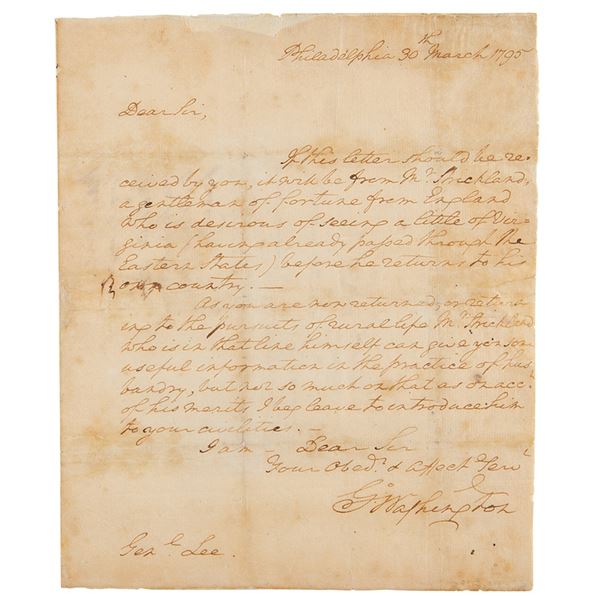 Philadelphia 30th March 1795
Dear Sir,
If this letter should be re-
ceived by you, it will be from Mr. Strickland,
a gentleman of fortune from England
who is desirous of seeing a little of Vir-
ginia (having already passed through the
Eastern States) before he returns to his
own country. —
As you are now returned, or return
ing to the pursuits of rural life Mr. Strickland
who is in that line himself can give you some
useful information in the practice of hus-
bandry, but not so much on that as on acct.
of his merits I beg leave to introduce him
to your civilities. —
I am — Dear Sir
Your Obedt. & Affect. Servt
Go. Washington
Genl. Lee.